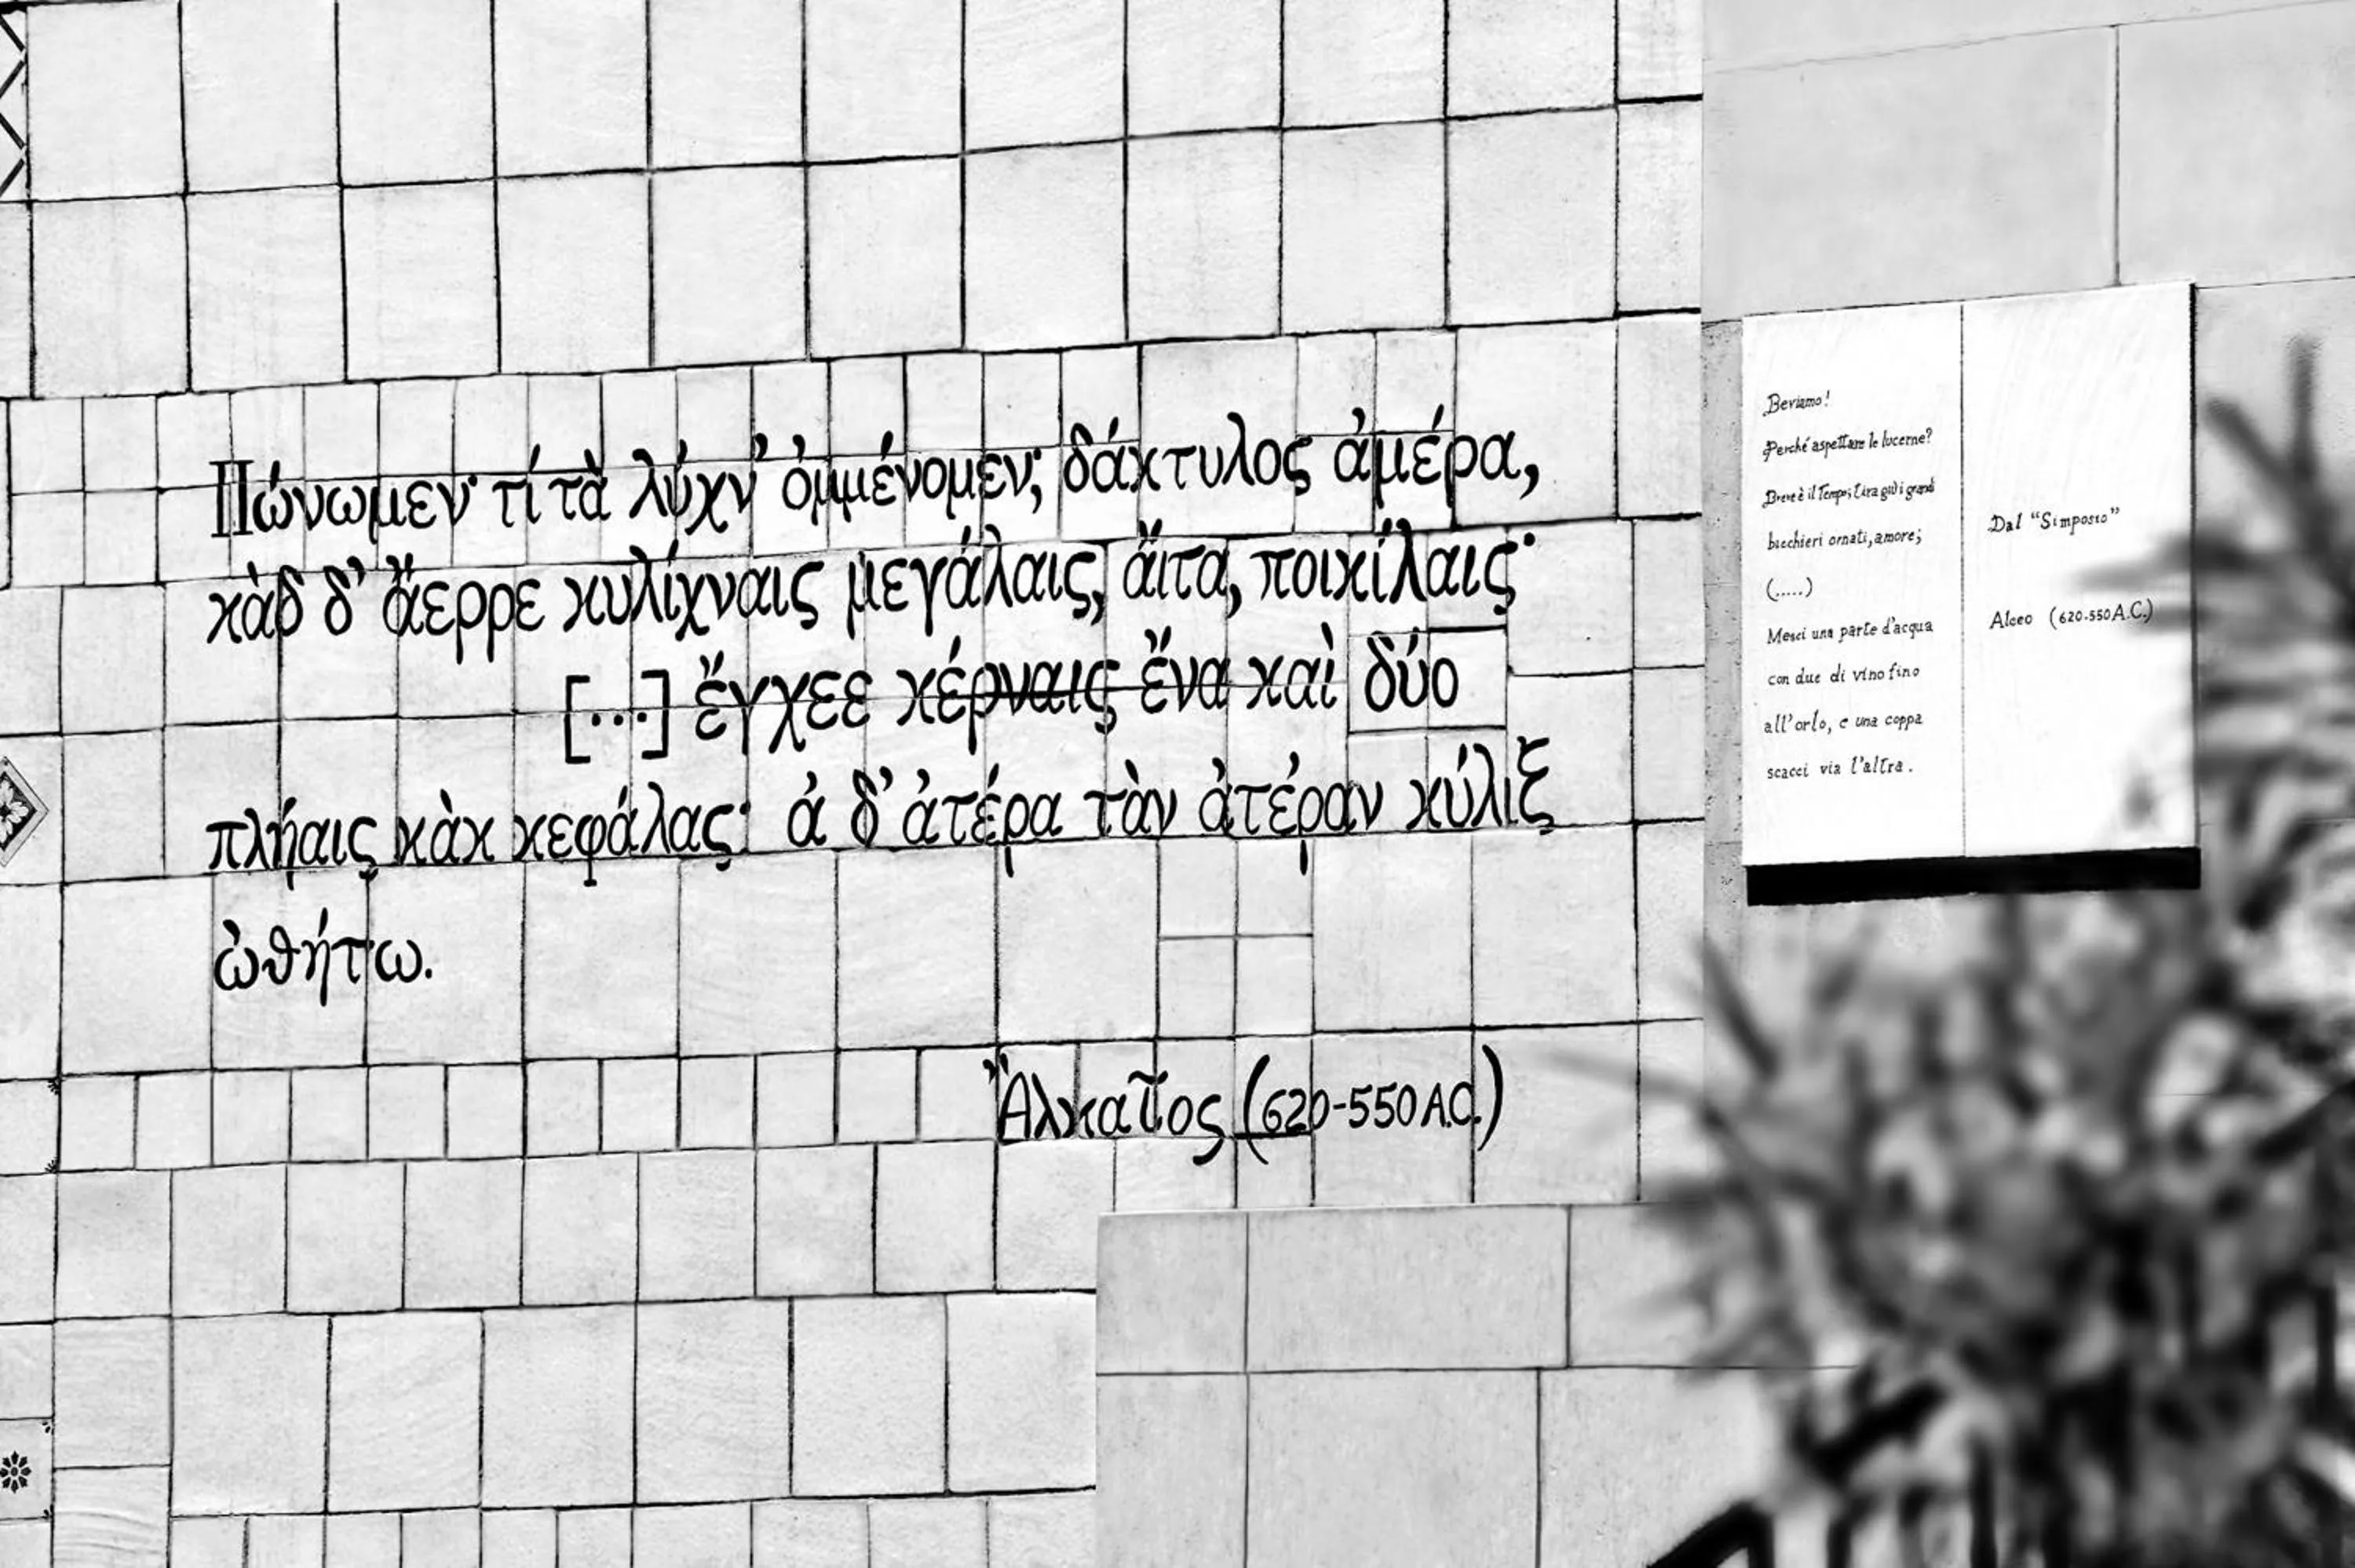 Πώνωμεν· τί τὰ λύχν' ὀμμένομεν; δάκτυλος ἀμέρα,
κὰδ δ' ἄερρε κυλίχναις μεγάλαις, ἄιτα, ποικίλαις·
[...] ἔγχεε κέρναις ἔνα καὶ δύο
πλήαις κὰκ κεφάλας· ἀ δ' ἀτέρα τὰν ἀτέραν κύλιξ
ὠθήτω.
Ἄλκαῖος (620-550 A.C.)
Beviamo!
Perché aspettare le lucerne?
Breve è il tempo; tira giù i grandi
bicchieri ornati, amore;
(.....)
Mesci una parte d'acqua
con due di vino fino
all'orlo, e una coppa
scacci via l'altra.
Dal "Simposio"
Alceo (620-550 A.C.)